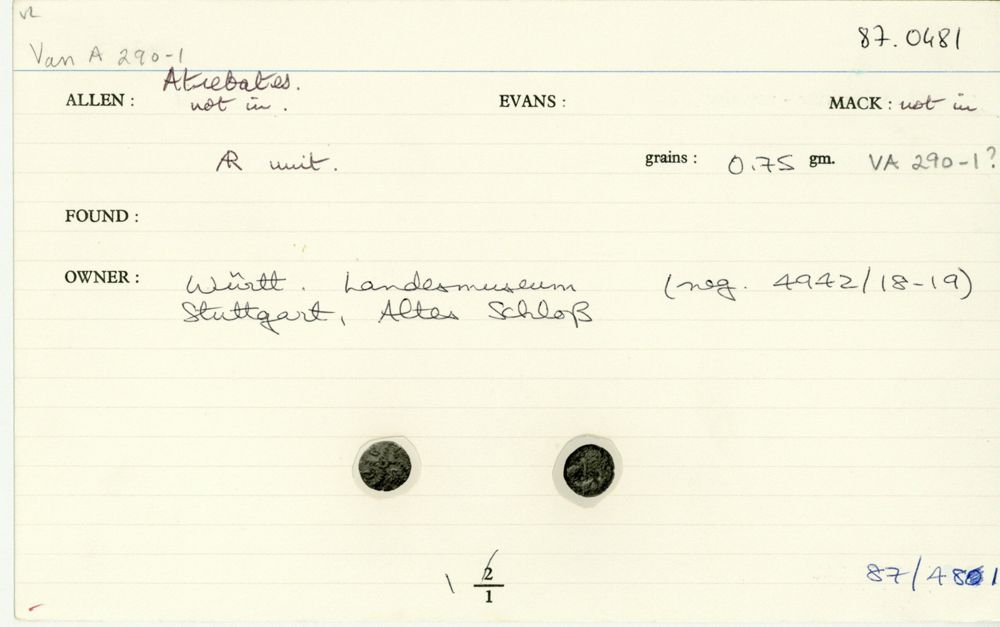 VL
87.0481
Van A 290-1
Atrebates.
ALLEN : not in. EVANS : MACK : not in
AR unit. grains : 0.75 gm. VA 290-1?
FOUND :
OWNER : Württ. Landesmuseum (neg. 4942/18-19)
Stuttgart, Altes Schloß
1 2/1
87/481